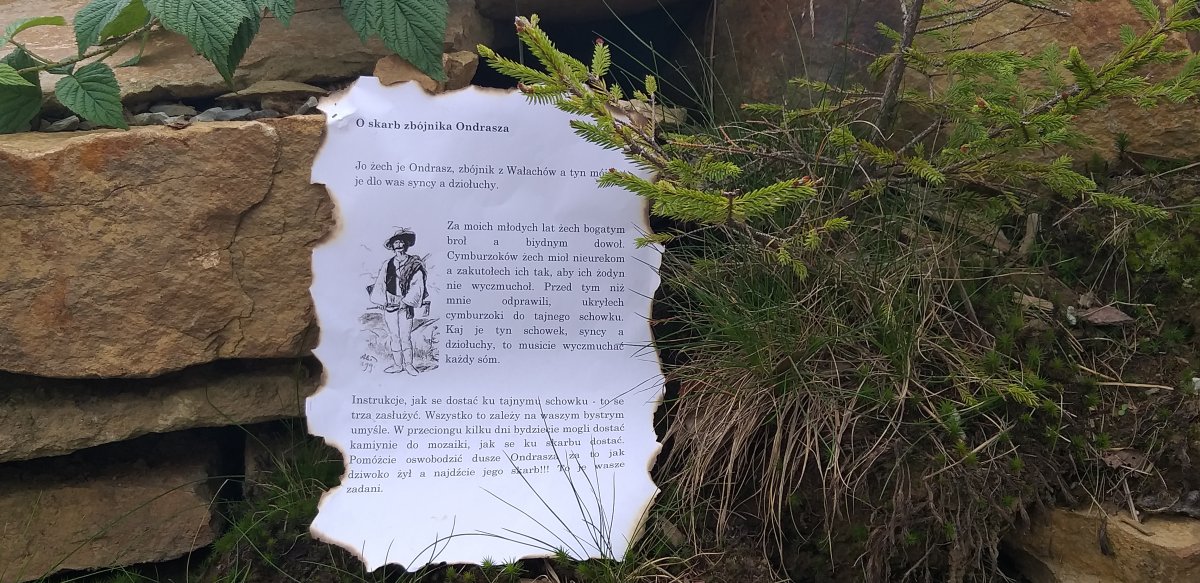 O skarb zbójnika Ondrasza
Jo żech je Ondrasz, zbójnik z Wałachów a tyn
je dlo was syncy a dziołuchy.
Za moich młodych lat żech bogatym
broł a biydnym dowoł.
Cymburzoków żech mioł nieurekom
a zakutołech ich tak, aby ich żodyn
nie wyczmuchoł. Przed tym niż
mnie odprawili, ukryłech
cymburzoki do tajnego schowku.
Kaj je tyn schowek, syncy a
dziołuchy, to musicie wyczmuchać
każdy sóm.
Instrukcje, jak se dostać ku tajnymu schowku - to se
trza zasłużyć. Wszystko to zależy na waszym bystrym
umyśle. W przeciongu kilku dni bydziecie mogli dostać
kamiynie do mozaiki, jak se ku skarbu dostać.
Pomóżcie oswobodzić dusze Ondrasza za to jak
dziwoko żył a najdźcie jego skarb!!! To je wasze
zadani.